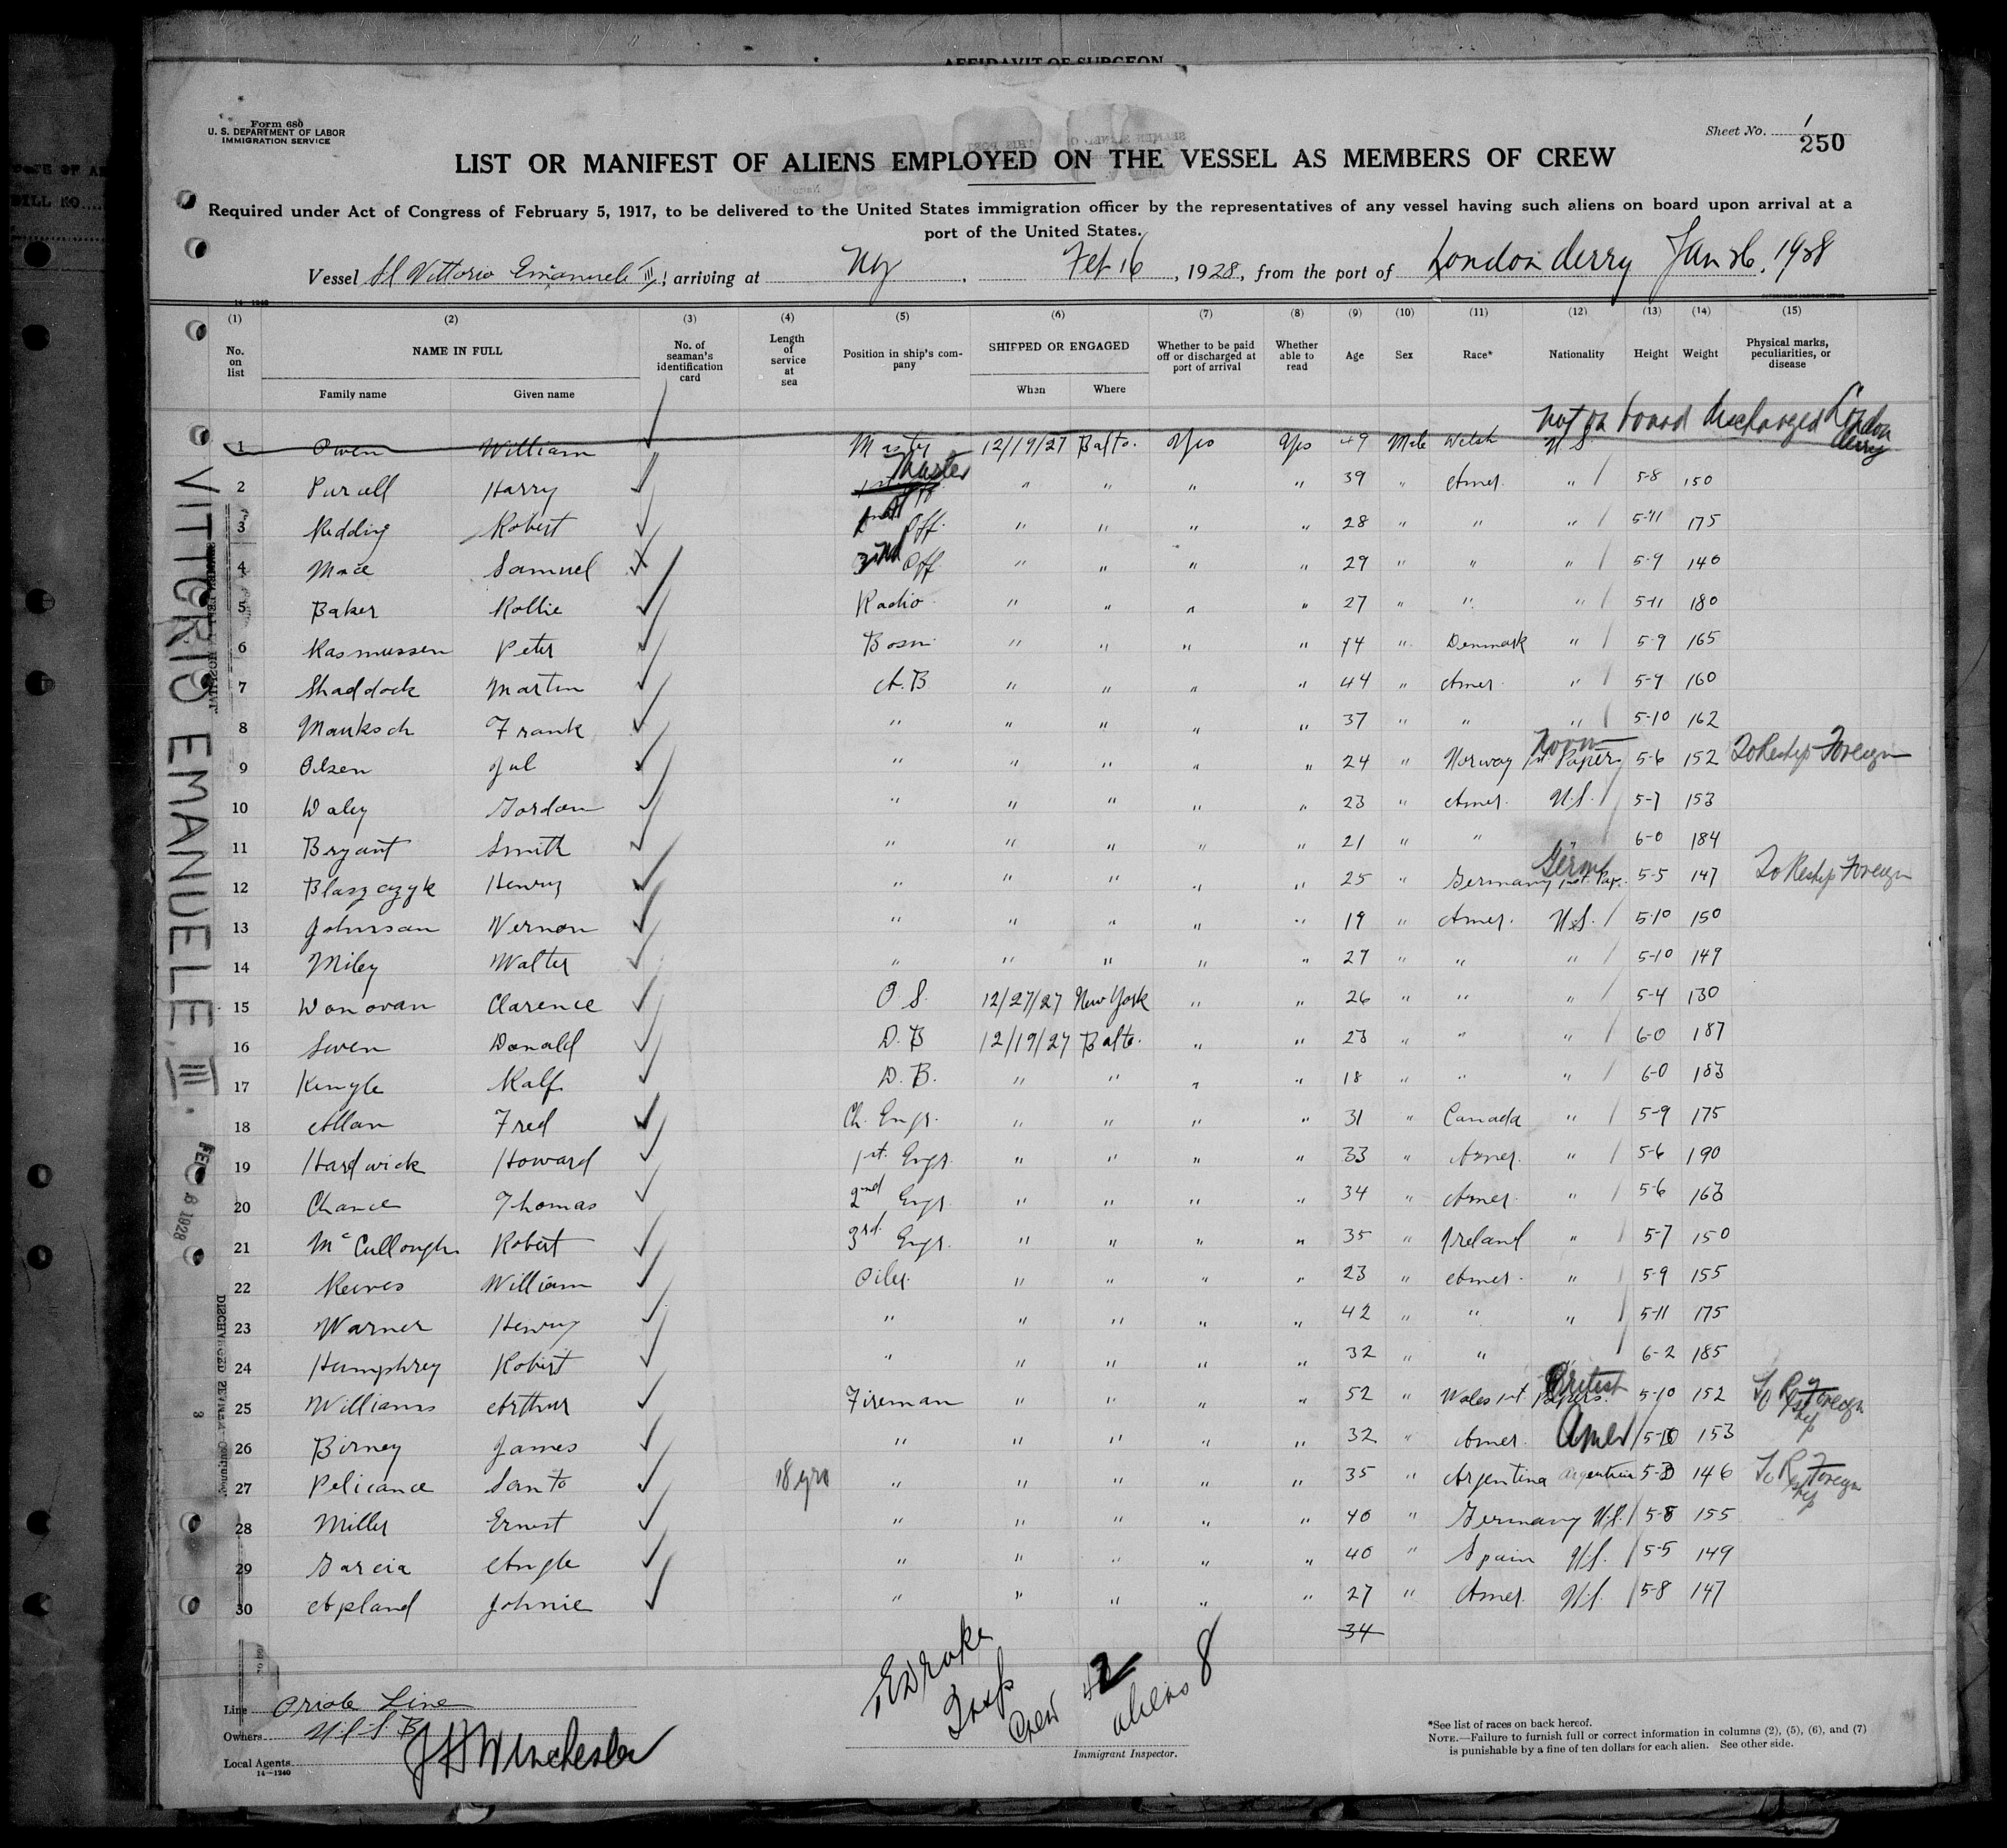 AFFIDAVIT OF SURGEON
Form 680
U. S. DEPARTMENT OF LABOR
IMMIGRATION SERVICE
Sheet No. 1
250
LIST OR MANIFEST OF ALIENS EMPLOYED ON THE VESSEL AS MEMBERS OF CREW
Required under Act of Congress of February 5, 1917, to be delivered to the United States immigration officer by the representatives of any vessel having such aliens on board upon arrival at a
port of the United States.
Vessel SS Vittorio Emanuele III, arriving at NY, Feb 16, 1928, from the port of London derry Jan 26, 1928
(1) (2) (3) (4) (5) (6) (7) (8) (9) (10) (11) (12) (13) (14) (15)
No. on list NAME IN FULL Family name Given name No. of seaman's identification card Length of service at sea Position in ship's company SHIPPED OR ENGAGED When Where Whether to be paid off or discharged at port of arrival Whether able to read Age Sex Race* Nationality Height Weight Physical marks, peculiarities, or disease
not on board discharged London derry
1 Owen William Master 12/19/27 Balto. Yes Yes 49 Male Welsh U S
2 Purcell Harry Master " " " " 39 " Amer. " 5-8 150
3 Redding Robert Off. " " " " 28 " " " 5-11 175
4 Mace Samuel 2nd Off. " " " " 29 " " " 5-9 140
5 Baker Rollie Radio " " " " 27 " " " 5-11 180
6 Rasmussen Peter Bosn. " " " " 44 " Denmark " 5-9 165
7 Shaddock Martin A.B " " " " 44 " Amer. " 5-9 160
8 Manksch Frank " " " " " 37 " " " 5-10 162
9 Olsen Jul " " " " " 24 " Norway Norw 1st Papers 5-6 152 To Reship Foreign
10 Waley Gordon " " " " " 23 " Amer. U.S. 5-7 153
11 Bryant Smith " " " " " 21 " " 6-0 184
12 Blaszczyk Henry " " " " " 25 " Germany Germ 1st. Pap. 5-5 147 To Reship Foreign
13 Johnson Vernon " " " " " 19 " Amer. U.S. 5-10 150
14 Miley Walter " " " " " 27 " " " 5-10 149
15 Donovan Clarence O S. 12/27/27 New York " " 26 " " " 5-4 130
16 Swen Donald D. B 12/19/27 Balto. " " 23 " " " 6-0 187
17 Kengle Ralf D. B. " " " " 18 " " " 6-0 183
18 Allan Fred Ch. Engr. " " " " 31 " Canada " 5-9 175
19 Hardwick Howard 1st. Engr. " " " " 33 " Amer. " 5-6 190
20 Chance Thomas 2nd Engr " " " " 34 " Amer. " 5-6 163
21 McCullough Robert 3rd. Engr. " " " " 35 " Ireland " 5-7 150
22 Reeves William Oiler. " " " " 23 " Amer. " 5-9 155
23 Warner Henry " " " " " 42 " " " 5-11 175
24 Humphrey Robert " " " " " 32 " " " 6-2 185
25 Williams Arthur Fireman " " " " 52 " Wales 1st Papers. British 5-10 152 To Reship Foreign
26 Birney James " " " " " 32 " Amer. Amer 153
27 Pelicance Santo 18 yrs " " " " " 35 " Argentina Argentina 146 To Reship Foreign
28 Miller Ernest " " " " " 40 " Germany U.S. 5-8 155
29 Garcia Angle " " " " " 40 " Spain U.S. 5-5 149
30 Apland Johnie " " " " " 27 " Amer. U.S. 5-8 147
34
VITTORIO EMANUELE III.
FEB 1928
E Drake
Insp
Crew 42
aliens 8
Immigrant Inspector.
Line Oriole Line
Owners U.S.S.B.
Local Agents J H Winchester
14—1240
*See list of races on back hereof.
NOTE.—Failure to furnish full or correct information in columns (2), (5), (6), and (7)
is punishable by a fine of ten dollars for each alien. See other side.